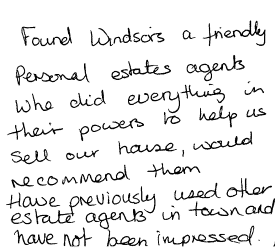 Found Windsors a friendly
Personal estates agents
who did everything in
their powers to help us
sell our house, would
recommend them
Have previously used other
estate agents in town and
have not been impressed.